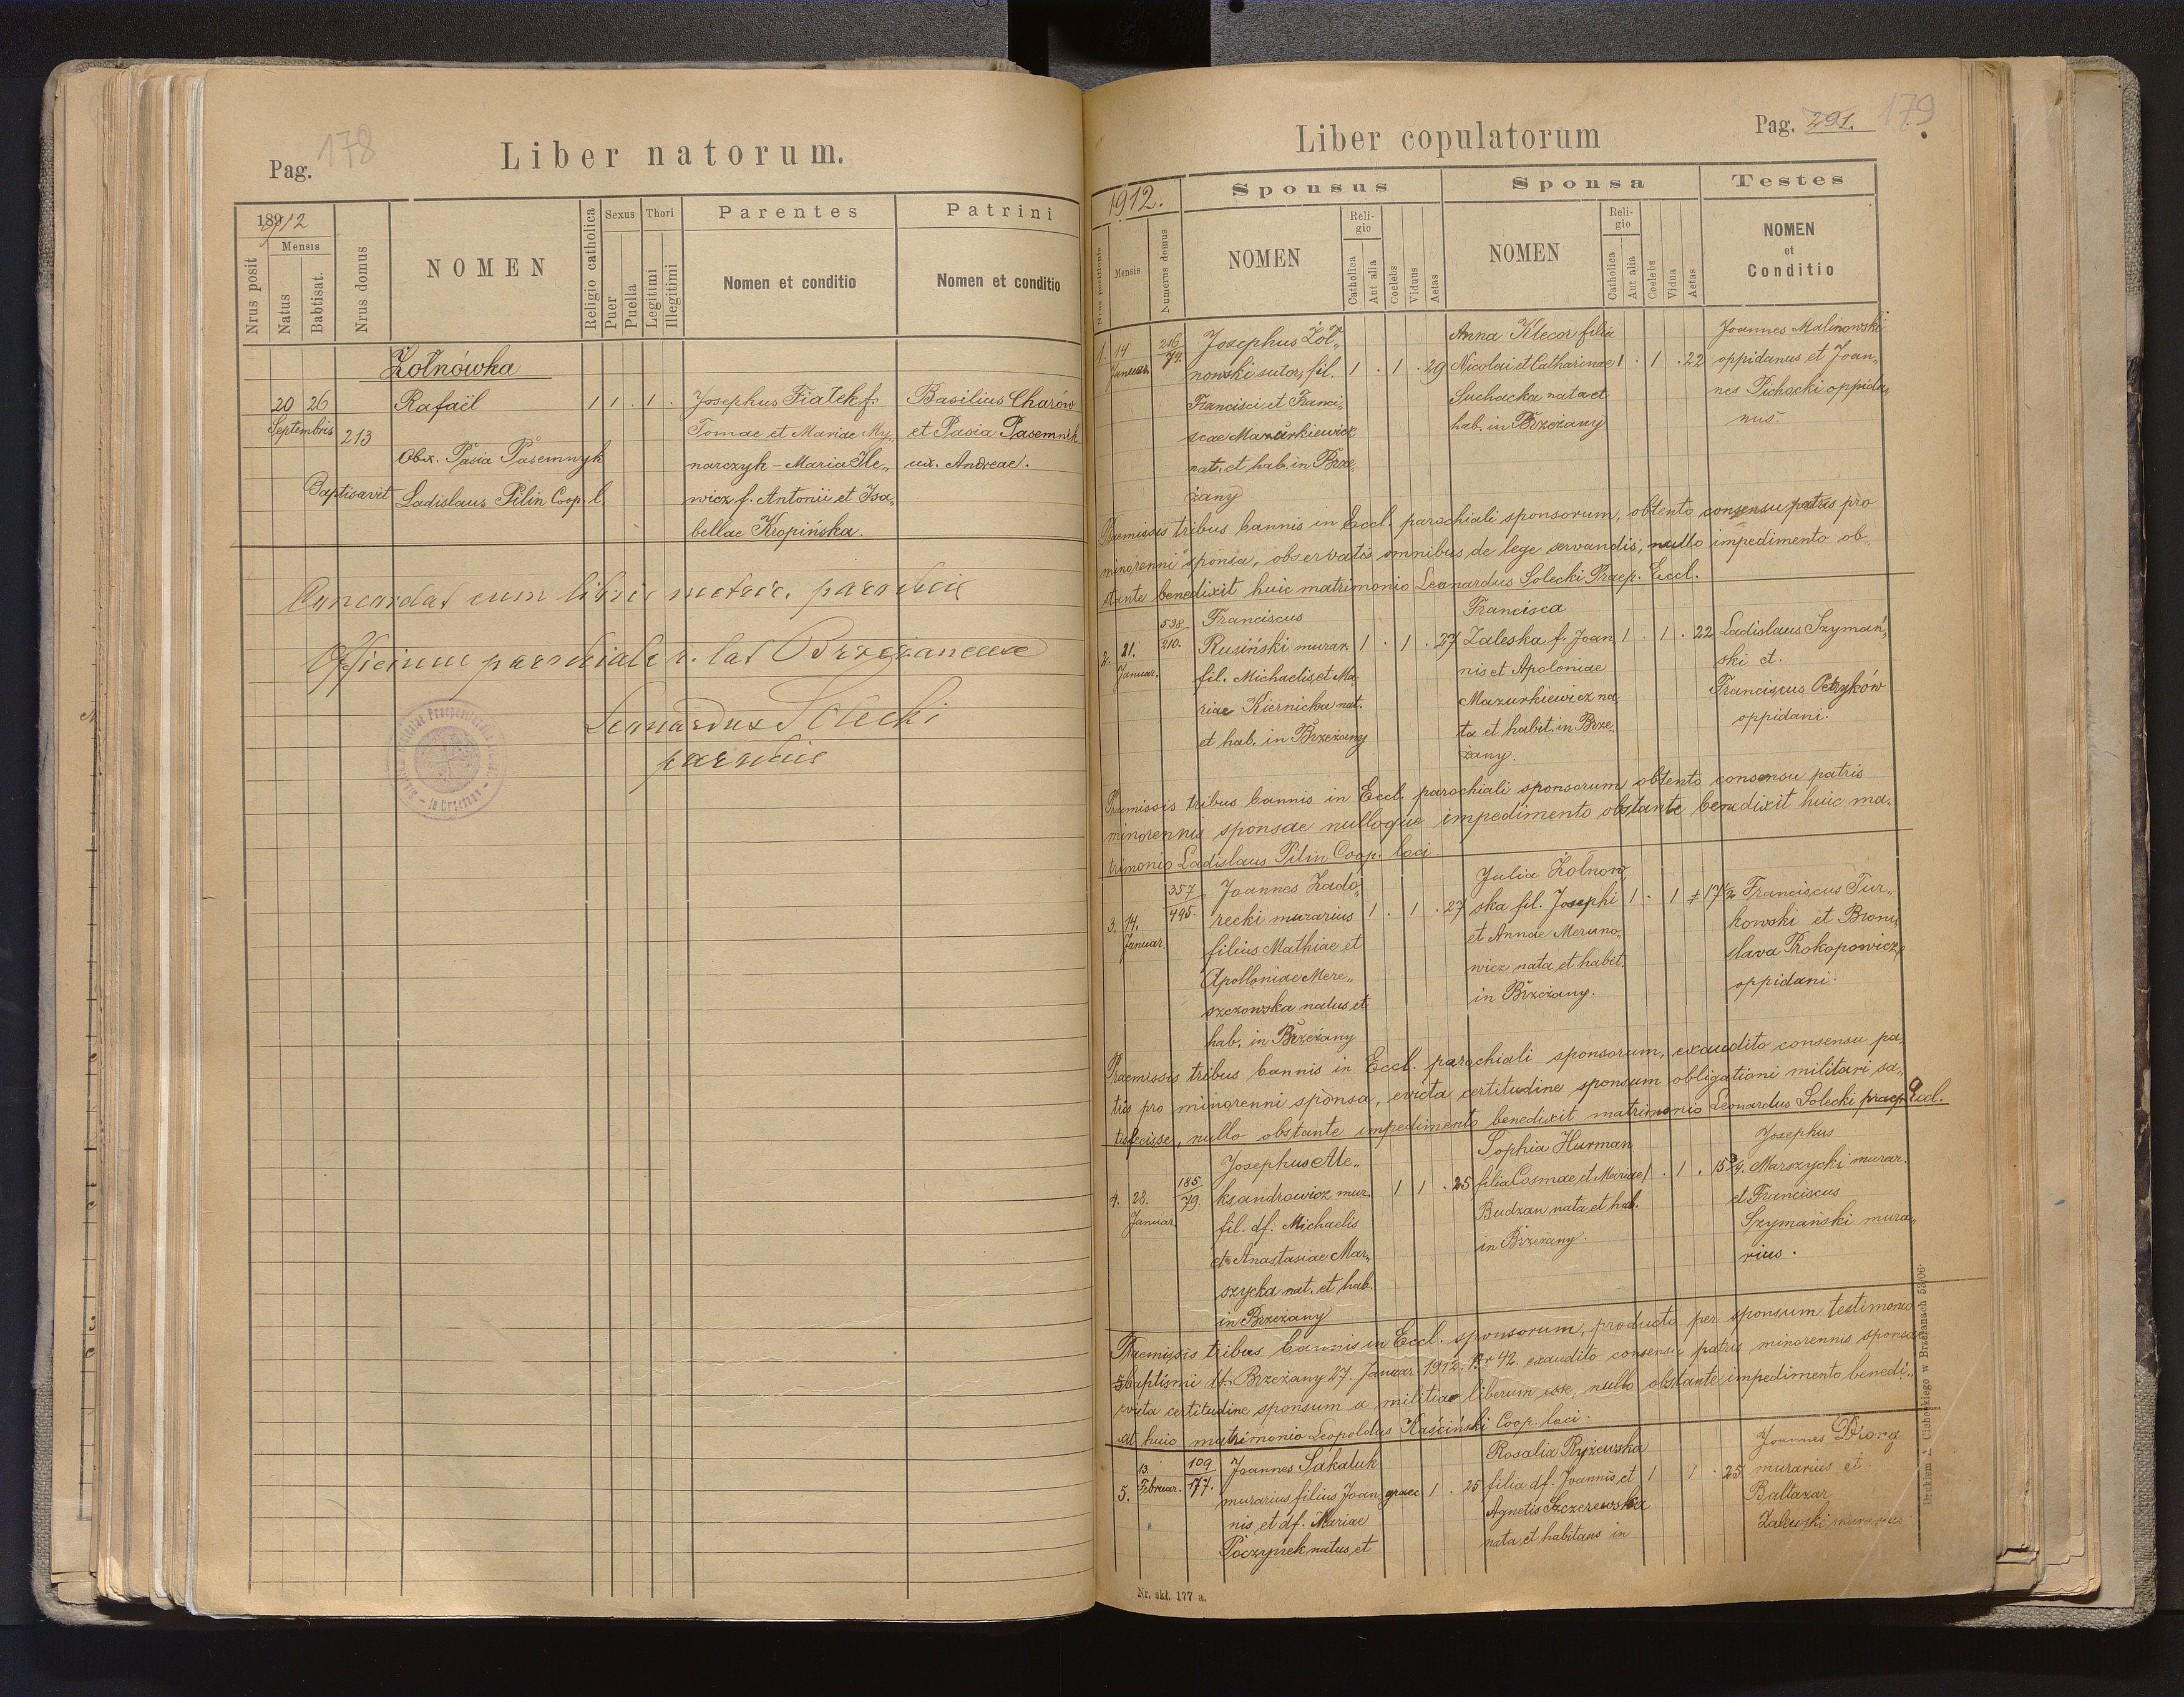 Pag. 178
Liber natorum.
189 912
Mensis
Nrus posit
Natus
Babtisat.
Nrus domus
NOMEN
Religio catholica
Sexus
Puer
Puella
Thori
Legitimi
Illegitimi
Parentes
Nomen et conditio
Patrini
Nomen et conditio
Żołnówka
20 26 Rafaël 1 1 . 1 . Josephus Fiałek f. Basilius Charów
Septembris 213 Tomae et Mariae My„ et Pasia Pasemnik
Obx. Pasia Pasemnyk narczyk – Maria Ile„ ux. Andreae.
Baptisavit Ladislaus Pilin Coop. l. wicz f. Antonii et Isa„
bellae Kropińska.
Concordat cum libris metric. parochiae
Officium parochiale r. lat Brzeżanense
Leonardus Solecki
parochus
Pag. 291. 179
Liber copulatorum
1912.
Sponsus
Sponsa
Testes
Nrus positionis
Mensis
Numerus domus
NOMEN
Religio
Catholica
Aut alia
Coelebs
Viduus
Aetas
NOMEN
Religio
Catholica
Aut alia
Coelebs
Vidua
Aetas
NOMEN
et
Conditio
1. 14 Januar. 216/74. Josephus Żoł„ Anna Klecor filia Joannes Malinowski
nowski sutor, fil. 1 . 1 . 29 Nicolai et Catharinae 1 . 1 . 22 oppidanus et Joan„
Francisci et Franci„ Suchacka nata et nes Pichocki oppida„
scae Mazurkiewicz hab. in Brzeżany nus.
nat. et hab. in Brze„
żany
Praemissis tribus bannis in Eccl. parochiali sponsorum, obtento consensu patris pro
minorenni sponsa, observatis omnibus de lege servandis, nullo impedimento ob„
stante benedixit huic matrimonio Leonardus Solecki Praep. Eccl.
2. 21. Januar. 538/210. Franciscus Francisca
Rusiński murar. 1 . 1 . 27 Zaleska f. Joan 1 . 1 . 22 Ladislaus Szymań„
fil. Michaelis et Ma„ nis et Apoloniae ski et
riae Kiernicka nat. Mazurkiewicz na„ Franciscus Petryków
et hab. in Brzeżany ta et habit. in Brze„ oppidani.
żany.
Praemissis tribus bannis in Eccl. parochiali sponsorum, obtento consensu patris
minorennis sponsae nulloque impedimento obstante benedixit huic ma„
trimonio Ladislaus Pilin Coop. loci.
3. 14. Januar. 357/495. Joannes Zado„ Julia Żołnow„
recki murarius 1 . 1 . 27 ska fil. Josephi 1 . 1 17 1/2 Franciscus Tur„
filius Mathiae et et Annae Meruno„ kowski et Broni„
Apolloniae Mere„ wicz nata et habit. slava Prokopowicz,
szczowska natus et in Brzeżany. oppidani.
hab. in Brzeżany
Praemissis tribus bannis in Eccl. parochiali sponsorum, exaudito consensu pa„
tris pro minorenni sponsa, evicta certitudine sponsum obligationi militari sa„
tisfecisse, nullo obstante impedimento benedixit matrimonio Leonardus Solecki praep. Eccl.
4. 28. Januar 185/79. Josephus Ale„ Sophia Hurman Josephus
ksandrowicz mur. 1 1 . 25 filia Cosmae et Mariae 1 . 1 . 15 3/4. Marszycki murar.
fil. df. Michaelis Budzan nata et hab. et Franciscus
et Anastasiae Mar„ in Brzeżany. Szymański mura„
szycka nat. et hab. rius.
in Brzeżany
Praemissis tribus bannis in Eccl. sponsorum, producto per sponsum testimonio
baptismi df. Brzeżany 27. Januar. 1912. Nr 42. exaudito consensu patris minorennis sponsae
evicta certitudine sponsum a militiae liberum esse, nullo obstante impedimento benedi„
xit huic matrimonio Leopoldus Kaściński Coop. loci.
5. 13. Februar. 109/177. Joannes Sakaluk Rosalia Ryżewska Joannes Drong
murarius filius Joan graec 1 . 25 filia df. Joannis et 1 1 . 25 murarius et
nis et df. Mariae Agnetis Szczerewska Baltazar
Poczynek natus et nata et habitans in Zalewski murarius
Drukiem A. Cichockiego w Brzeżanach 53/06.
Nr. skł. 177 a.